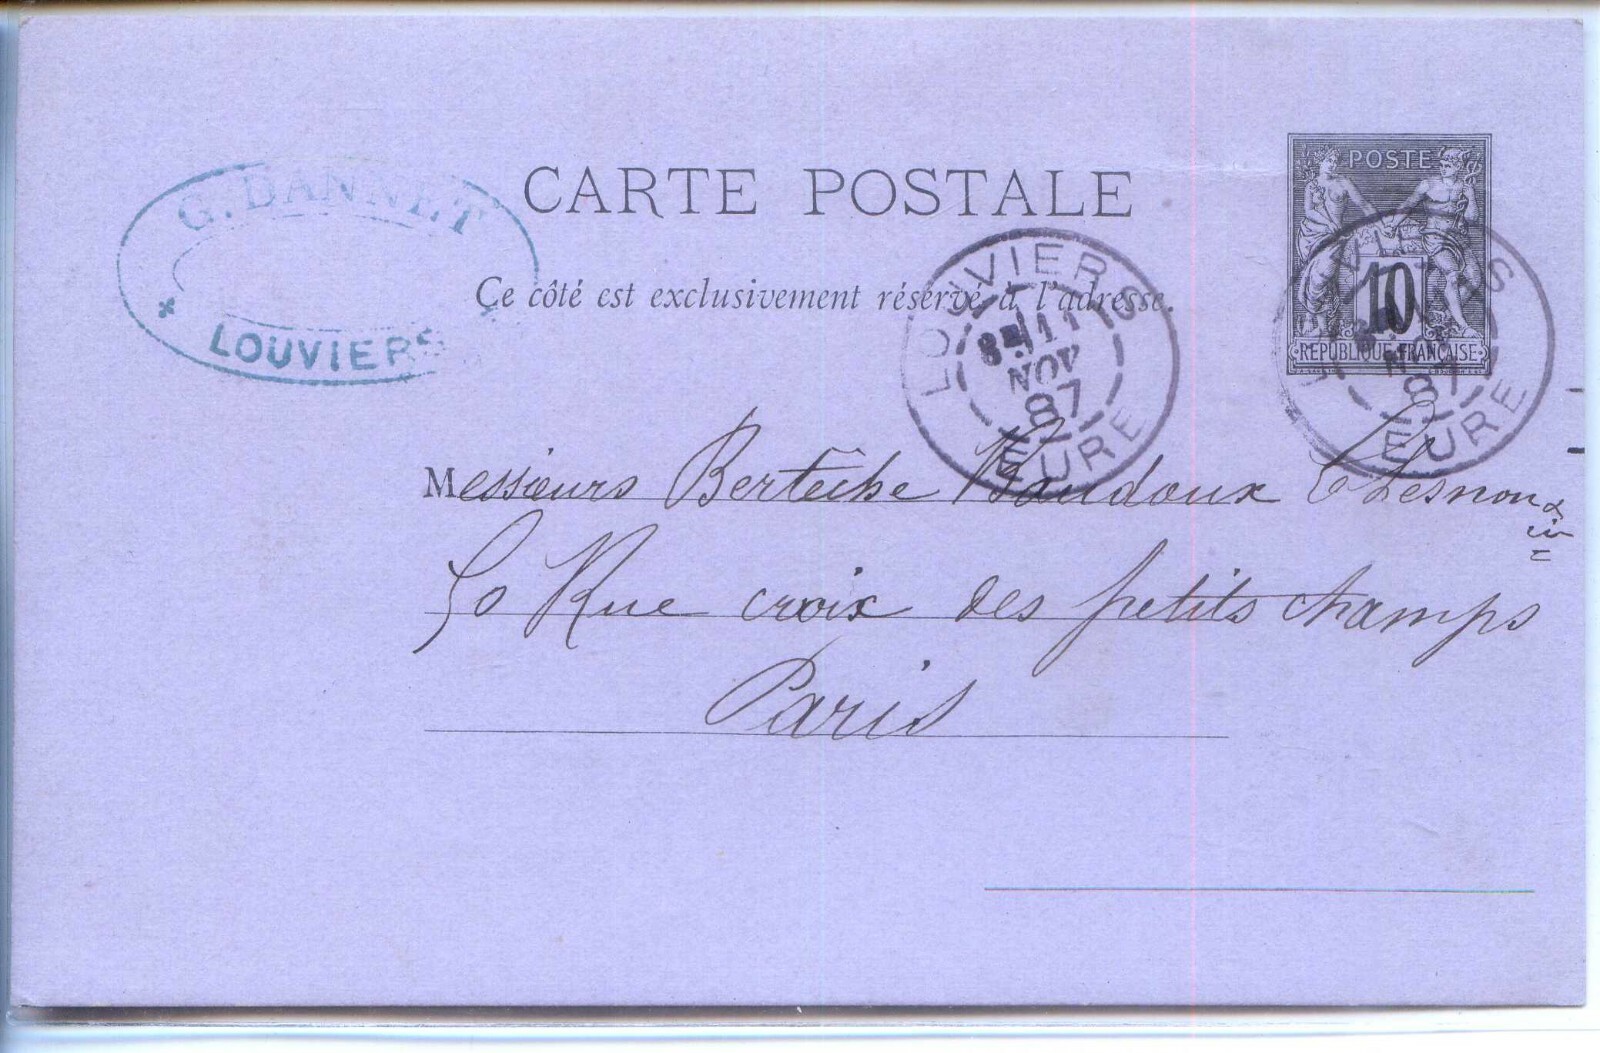 G. DANNET
LOUVIERS
CARTE POSTALE
Ce côté est exclusivement réservé à l'adresse.
POSTE
10
REPUBLIQUE FRANÇAISE
LOUVIERS
11
NOV
87
EURE
LOUVIERS
NOV
87
EURE
Messieurs Berteche Baudoux & Lesnon
50 Rue croix des petits champs
Paris